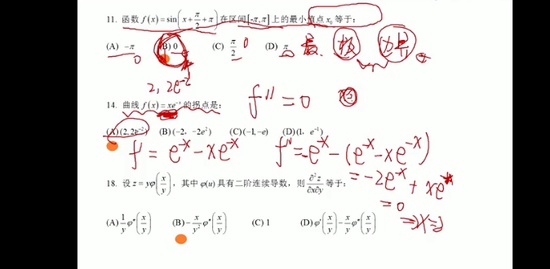 11. 函数 f(x)=sin(x+π/2+π) 在区间[-π,π]上的最小值点 x₀ 等于:
(A) -π (B) 0 (C) π/2 (D) π
0 0
极
2, 2e⁻²
f''=0
14. 曲线 f(x)=xe⁻ˣ 的拐点是:
(A)(2, 2e⁻²) (B)(-2, -2e²) (C)(-1,-e) (D)(1, e⁻¹)
f'=e⁻ˣ-xe⁻ˣ f''=-e⁻ˣ-(e⁻ˣ-xe⁻ˣ)
=-2e⁻ˣ+xe⁻ˣ
=0
18. 设 z=yφ(x/y), 其中 φ(u) 具有二阶连续导数, 则 ∂²z/∂x∂y 等于:
⇒x=2
(A) 1/y φ''(x/y) (B) -x/y² φ''(x/y) (C) 1 (D) φ'(x/y)-x/y φ''(x/y)